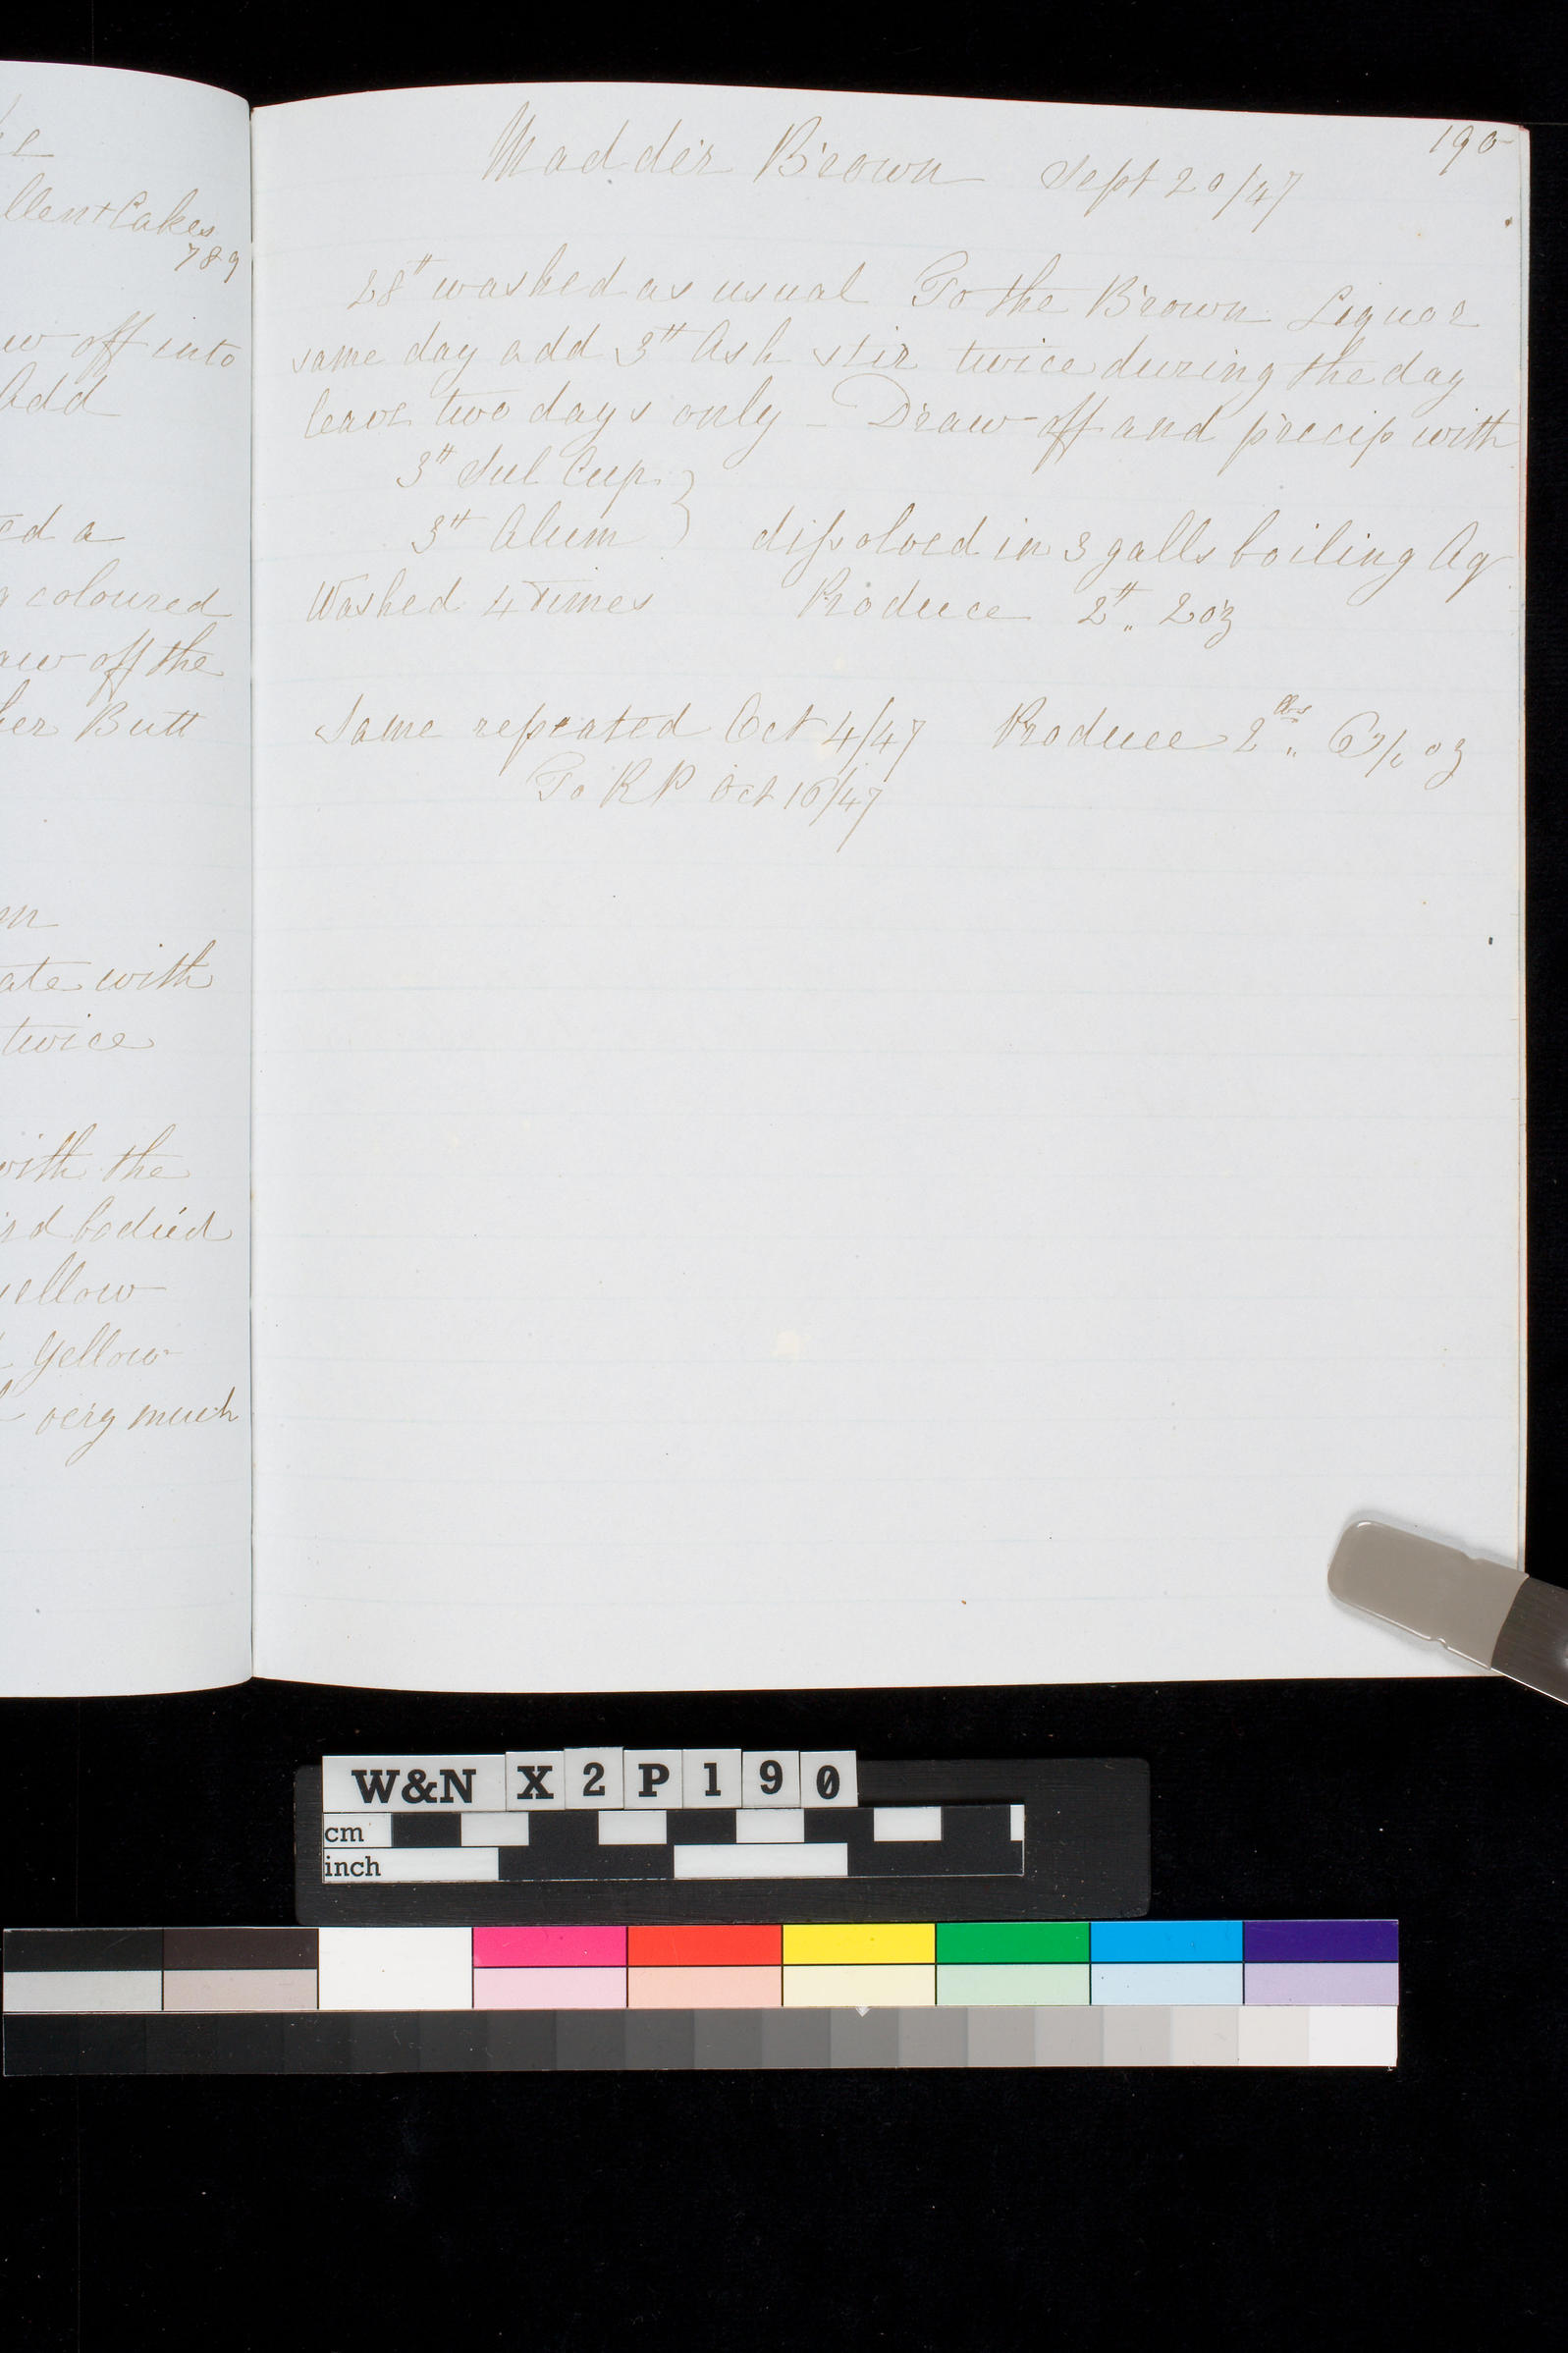 he
llent Cakes
789
w off into
Add
ed a
g coloured
aw off the
her Butt
m
ate with
twice
with the
bodied
yellow
Yellow
very much
190
Madder Brown Sept 20/47
28# washed as usual To the Brown Liquor
same day add 3# Ash stir twice during the day
leave two days only - Draw off and precip with
3# Sul Cup }
3# Alum } dissolved in 3 galls boiling Aq
Washed 4 Times Produce 2# " 2 oz
Same repeated Oct 4/47 Produce 2 lbs " oz
To RP Oct 16/47
W&N X2P190
cm
inch